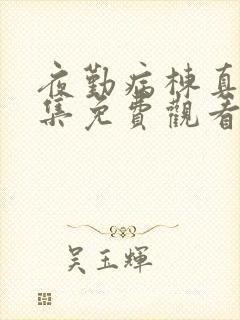 夜勤病棟真
集免費觀看
吴玉輝